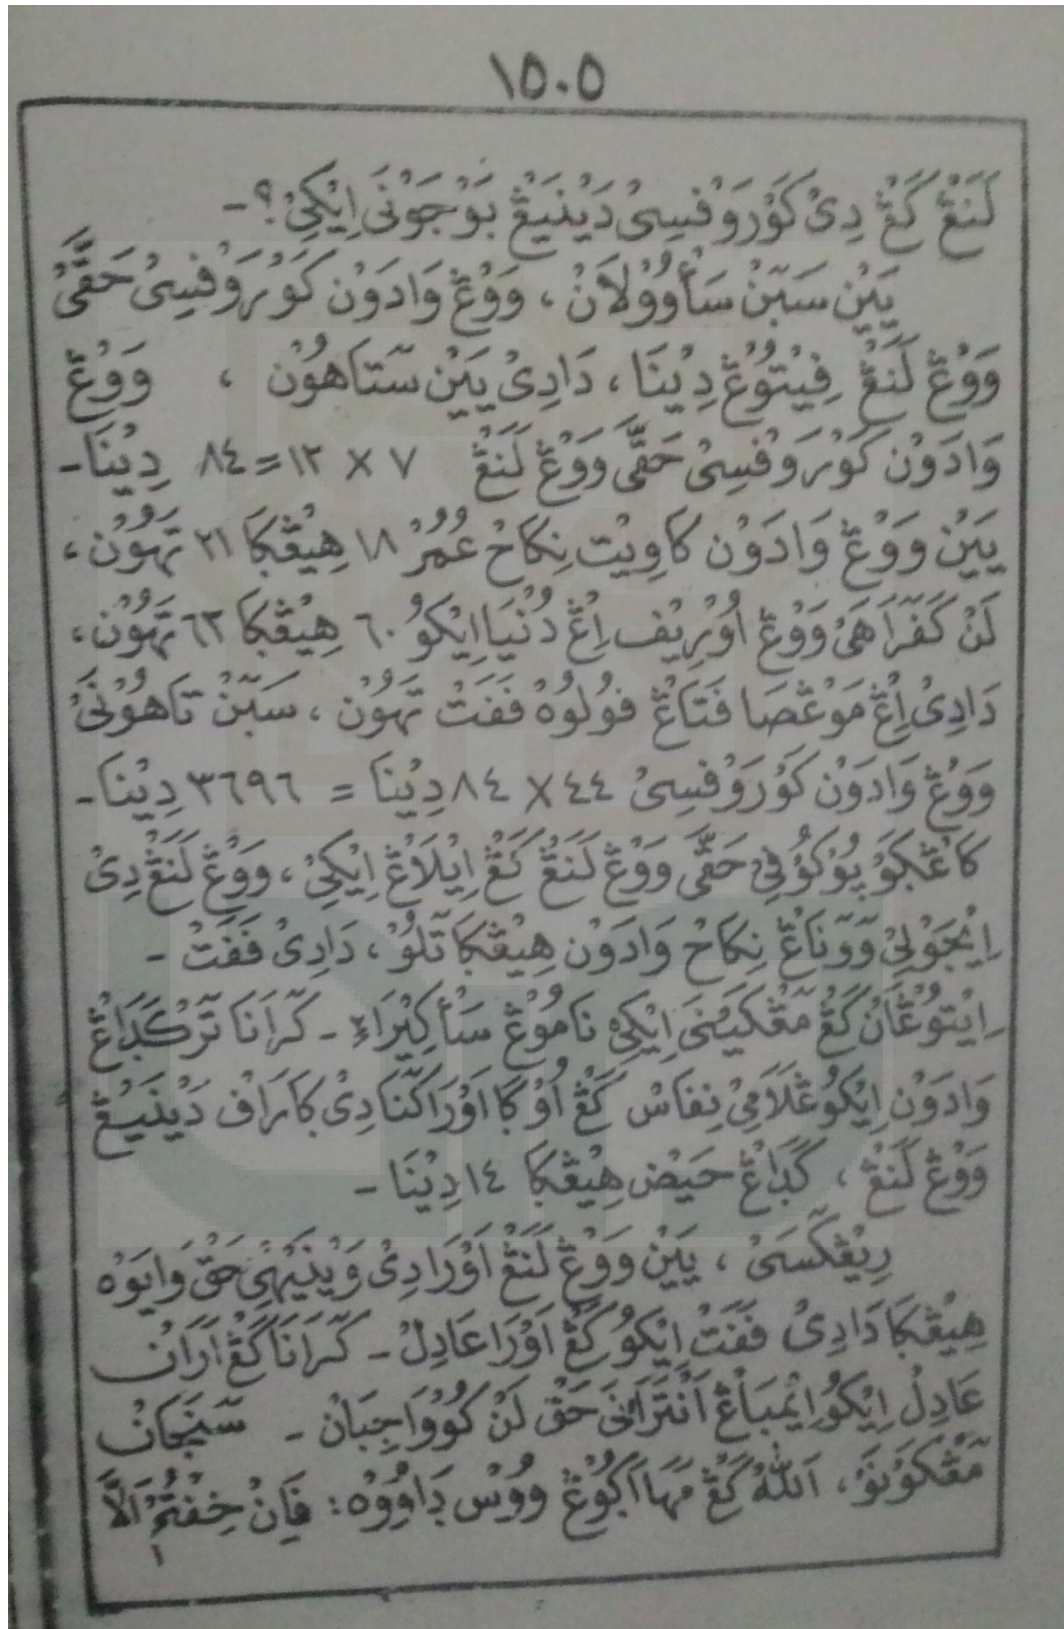 ١٥٠٥
لَنَڠْ كَڠْ دِيْ كَوْرَوْڤِسِيْ دَيْنَيْڠْ بَوْجَوْنَيْ اِيْكِيْ؟ -
يَيْنْ سَبّنْ سَأْوُوْلَانْ، وَوْڠْ وَادَوْنْ كَوْرَوْڤِسِيْ حَقَّيْ
وَوْڠْ لَنَڠْ ڤِيْتُوْڠْ دِيْنَا، دَادِيْ يَيْنْ سَتَاهُوْنْ ، وَوْڠْ
وَادَوْنْ كَوْرَوْڤِسِيْ حَقَّيْ وَوْڠْ لَنَڠْ ٧ × ١٢ = ٨٤ دِيْنَا -
يَيْنْ وَوْڠْ وَادَوْنْ كَاوِيْتْ نِكَاحْ عُمُرْ ١٨ هِيْڠْڮَا ٢١ تَهُوْنْ،
لَنْ كَڤْرَاهَيْ وَوْڠْ اُوْرِيْڤْ اِڠْ دُنْيَا اِيْكُوْ ٦٠ هِيْڠْڮَا ٦٢ تَهُوْنْ،
دَادِيْ اِڠْ مَوْڠْصَا ڤَتَاڠْ ڤُوْلُوْهْ ڤَڤَتْ تَهُوْنْ ، سَبّنْ تَاهُوْنَيْ
وَوْڠْ وَادَوْنْ كَوْرَوْڤِسِيْ ٤٤ × ٨٤ دِيْنَا = ٣٦٩٦ دِيْنَا -
كَاڠْڮَوْ پُوْكُوْڤِيْ حَقَّيْ وَوْڠْ لَنَڠْ كَڠْ اِيْلَاڠْ اِيْكِيْ، وَوْڠْ لَنَڠْ دِيْ
اِيْجَوْلِيْ وَوَنَاڠْ نِكَاحْ وَادَوْنْ هِيْڠْڮَا تَلُوْ، دَادِيْ ڤَڤَتْ -
اِيْتُوْڠَانْ كَڠْ مَڠْكَيْنَيْ اِيْكِيْ نَامُوْڠْ سَأْكِيْرَاءْ - كَرَانَا تَرْكَدَاڠْ
وَادَوْنْ اِيْكُوْ ڠَلَامِيْ نِفَاسْ كَڠْ اُوْڮَا اَوْرَا كَنَا دِيْ ڮَارَافْ دَيْنَيْڠْ
وَوْڠْ لَنَڠْ، كَدَاڠْ حَيْضْ هِيْڠْڮَا ١٤ دِيْنَا -
رِيْڠْكَسَيْ ، يَيْنْ وَوْڠْ لَنَڠْ اَوْرَا دِيْ وَيْنَيْهِيْ حَقْ وَايَوْهْ
هِيْڠْڮَا دَادِيْ ڤَڤَتْ اِيْكُوْ كَڠْ اَوْرَا عَادِلْ - كَرَانَا كَڠْ اَرَانْ
عَادِلْ اِيْكُوْ اِيْمْبَاڠْ اَنْتَرَانَيْ حَقْ لَنْ كُوَوَاجِبَانْ - سَنَجَانْ
مَڠْكَوْنَوْ، اَللهُ كَڠْ مَهَا اَڮُوْڠْ وُوْسْ دَاوُوْهْ: فَاِنْ خِفْتُمْ اَلَّا